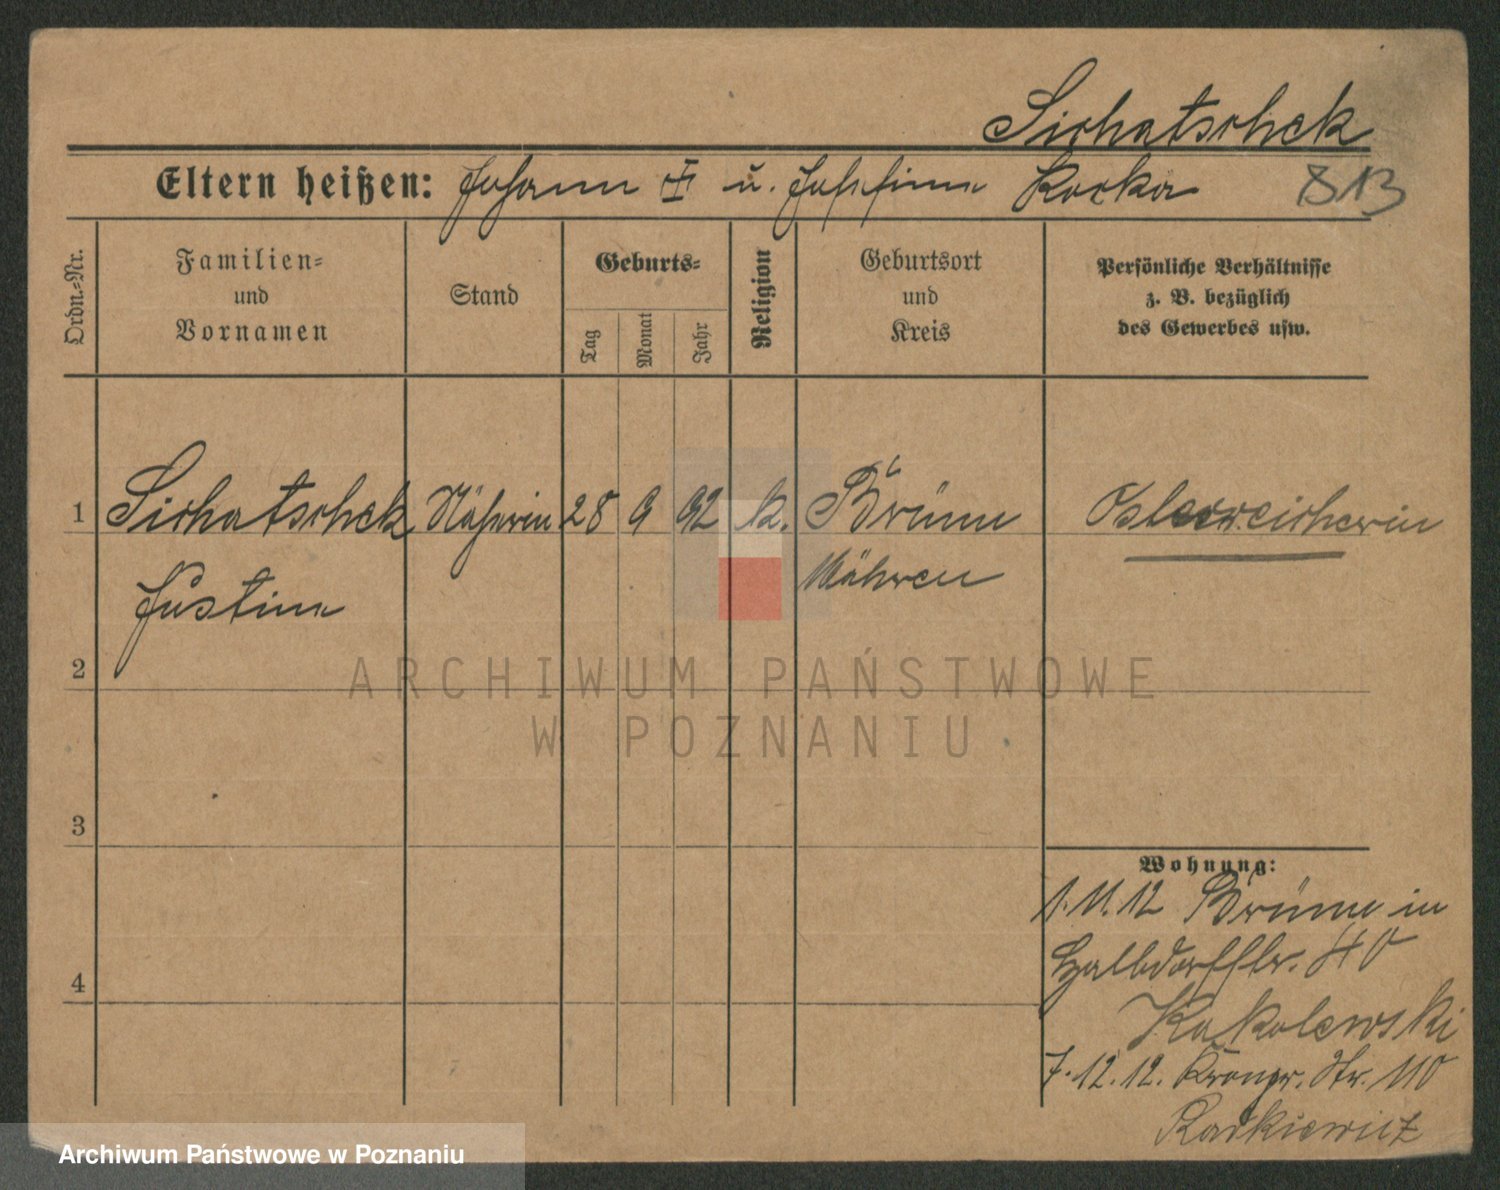 Sichatschek
Eltern heißen: Johann † u. Josefine Kocka
813
Ordn.-Nr.
Familien-
und
Vornamen
Stand
Geburts-
Tag
Monat
Jahr
Religion
Geburtsort
und
Kreis
Persönliche Verhältnisse
z. B. bezüglich
des Gewerbes usw.
1
Sichatschek
Näherin
28
9
92
k.
Brünn
Österreicherin
Mähren
Justine
2
ARCHIWUM PAŃSTWOWE
W POZNANIU
3
Wohnung:
1.11.12 Brünn in
Halbdorfstr. 40
4
Kakolewski
7.12.12. Kronpr. Str. 110
Radkiewicz
Archiwum Państwowe w Poznaniu